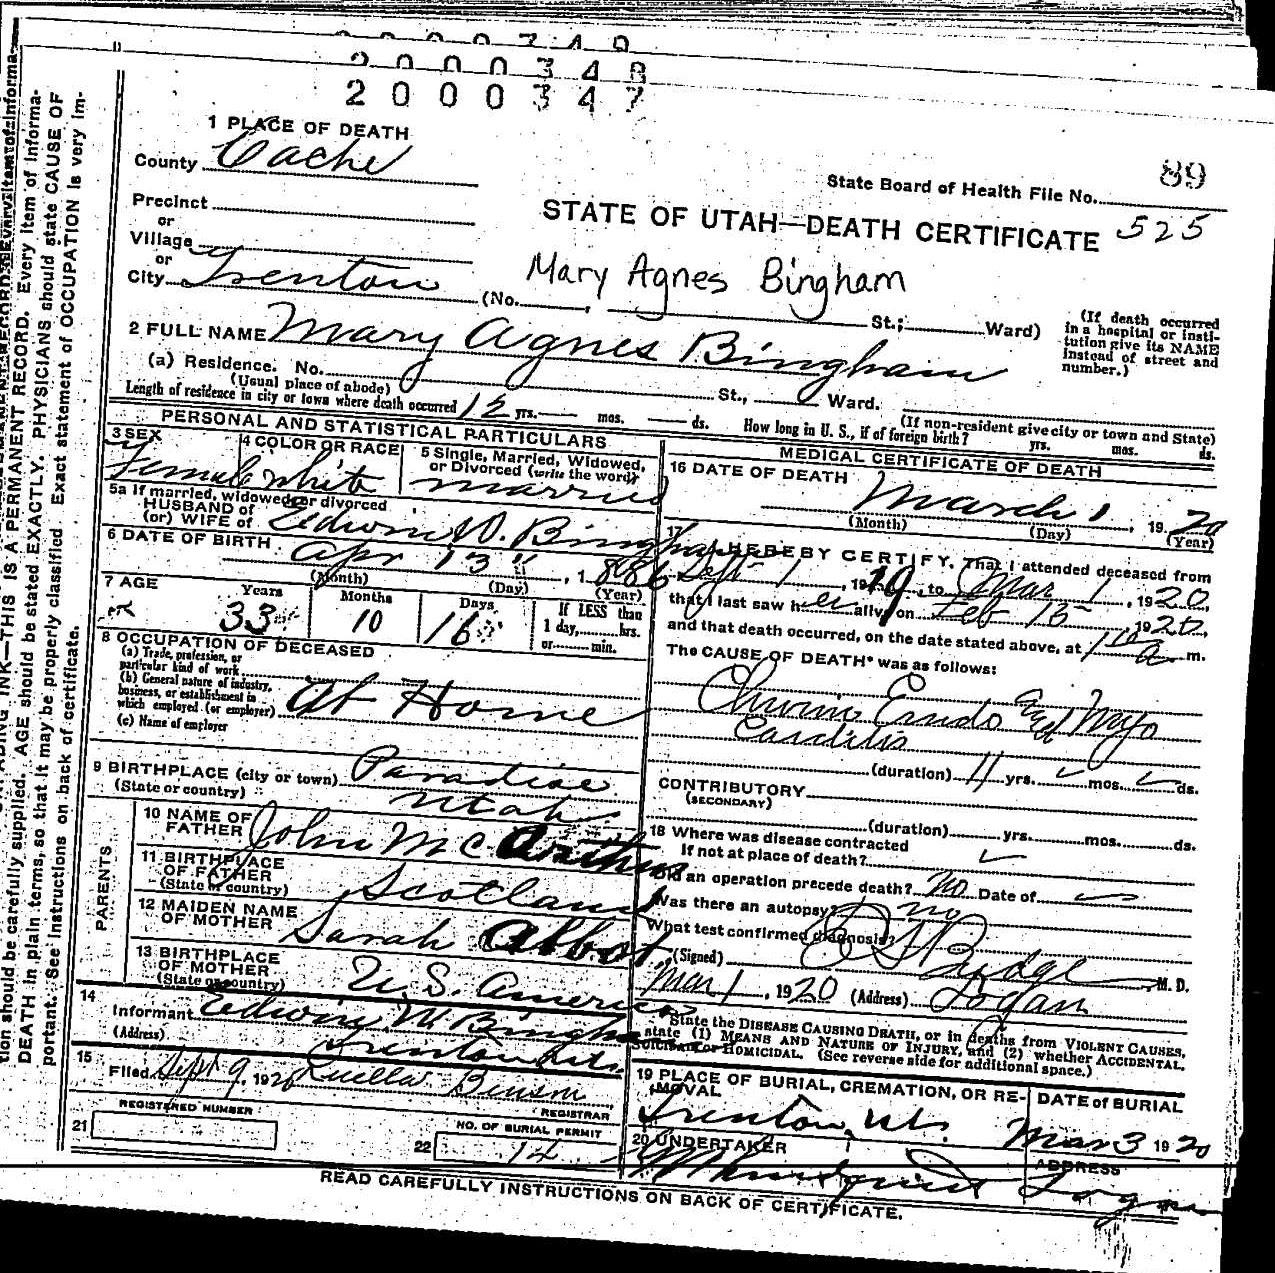 2 0 0 0 3 4 8
2 0 0 0 3 4 7
1 PLACE OF DEATH
County Cache
State Board of Health File No. 89
525
Precinct
or
Village
or
City Trenton
STATE OF UTAH—DEATH CERTIFICATE
Mary Agnes Bingham
(No. , St.; Ward)
(If death occurred
in a hospital or insti-
tution give its NAME
instead of street and
number.)
2 FULL NAME Mary Agnes Bingham
(a) Residence. No. St., Ward.
(Usual place of abode)
(If non-resident give city or town and State)
Length of residence in city or town where death occurred 12 yrs. mos. ds. How long in U. S., if of foreign birth? yrs. mos. ds.
PERSONAL AND STATISTICAL PARTICULARS
3 SEX
Female
4 COLOR OR RACE
White
5 Single, Married, Widowed,
or Divorced (write the word)
married
5a If married, widowed or divorced
HUSBAND of
(or) WIFE of Edwin W. Bingham
6 DATE OF BIRTH Apr 13 , 1886
(Month) (Day) (Year)
7 AGE
Years Months Days
33 10 16
If LESS than
1 day, hrs.
or min.
8 OCCUPATION OF DECEASED
(a) Trade, profession, or
particular kind of work
(b) General nature of industry,
business, or establishment in
which employed (or employer) At Home
(c) Name of employer
9 BIRTHPLACE (city or town) Paradise
(State or country) Utah
PARENTS
10 NAME OF
FATHER John McArthur
11 BIRTHPLACE
OF FATHER
(State or country) Scotland
12 MAIDEN NAME
OF MOTHER Sarah Abbot
13 BIRTHPLACE
OF MOTHER
(State or country) U.S. America
14
Informant Edwin W Bingham
(Address) Trenton Utah
15
Filed Sept 9, 1920 Luella Benson
REGISTRAR
REGISTERED NUMBER
21
NO. OF BURIAL PERMIT
22 14
MEDICAL CERTIFICATE OF DEATH
16 DATE OF DEATH March 1 , 1920
(Month) (Day) (Year)
17 I HEREBY CERTIFY, That I attended deceased from
Sept 1 , 1919, to Mar 1 , 1920,
that I last saw her alive on Feb 15 1920,
and that death occurred, on the date stated above, at a m.
The CAUSE OF DEATH* was as follows:
Endo and Myo
Carditis
(duration) 11 yrs. mos. ds.
CONTRIBUTORY
(SECONDARY)
(duration) yrs. mos. ds.
18 Where was disease contracted
if not at place of death?
Did an operation precede death? No Date of
Was there an autopsy? no
What test confirmed diagnosis?
(Signed) Budge M. D.
Mar 1 , 1920 (Address) Logan
State the DISEASE CAUSING DEATH, or in deaths from VIOLENT CAUSES,
state (1) MEANS AND NATURE OF INJURY, and (2) whether ACCIDENTAL,
SUICIDAL or HOMICIDAL. (See reverse side for additional space.)
19 PLACE OF BURIAL, CREMATION, OR RE-
MOVAL
Trenton, Ut.
DATE of BURIAL
Mar 3 1920
20 UNDERTAKER
ADDRESS
Logan
READ CAREFULLY INSTRUCTIONS ON BACK OF CERTIFICATE.
ADING INK—THIS IS A PERMANENT RECORD. Every item of informa-
tion should be carefully supplied. AGE should be stated EXACTLY. PHYSICIANS should state CAUSE OF
DEATH in plain terms, so that it may be properly classified. Exact statement of OCCUPATION is very im-
portant. See instructions on back of certificate.